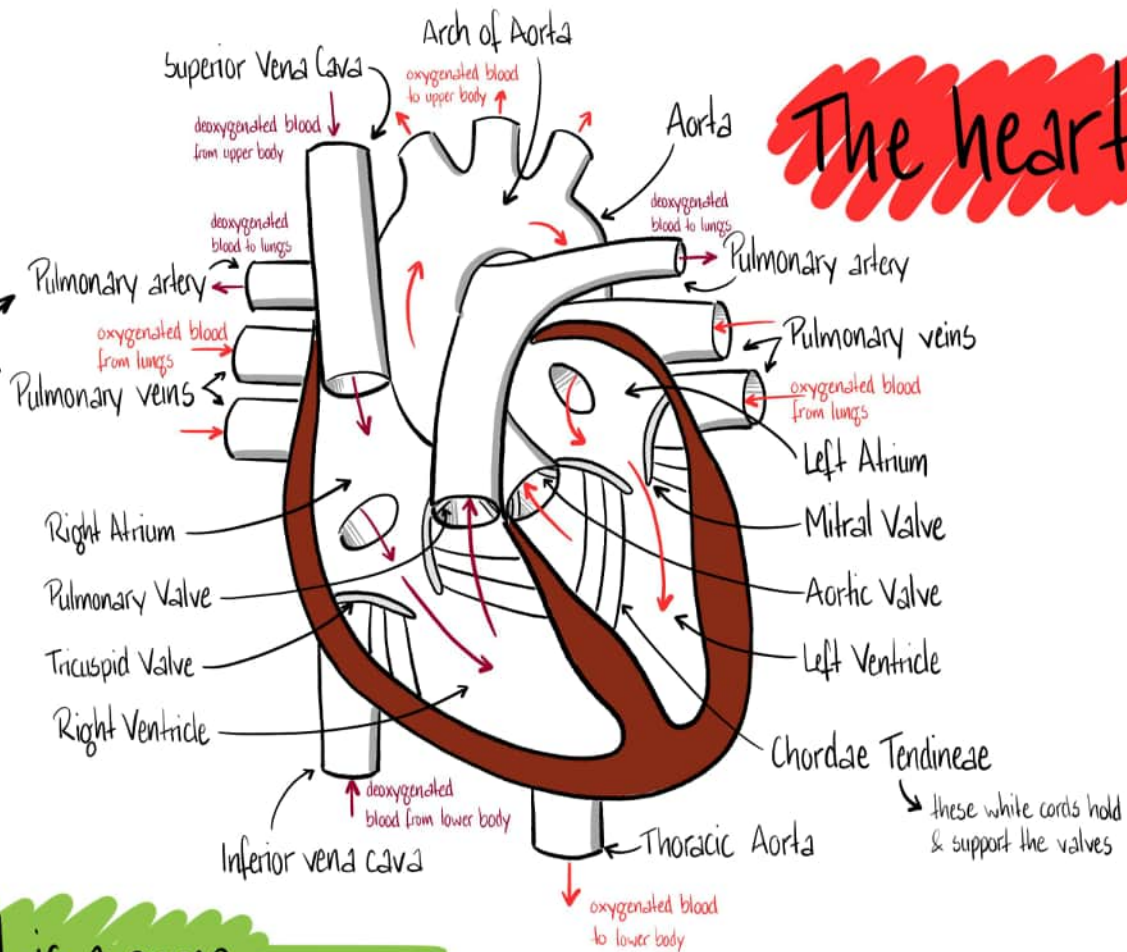 The heart
Arch of Aorta
Superior Vena Cava
oxygenated blood
to upper body
deoxygenated blood
from upper body
Aorta
deoxygenated
blood to lungs
deoxygenated
blood to lungs
Pulmonary artery
Pulmonary artery
oxygenated blood
from lungs
Pulmonary veins
Pulmonary veins
oxygenated blood
from lungs
Left Atrium
Right Atrium
Mitral Valve
Pulmonary Valve
Aortic Valve
Tricuspid Valve
Left Ventricle
Right Ventricle
Chordae Tendineae
these white cords hold
& support the valves
deoxygenated
blood from lower body
Inferior vena cava
Thoracic Aorta
oxygenated blood
to lower body